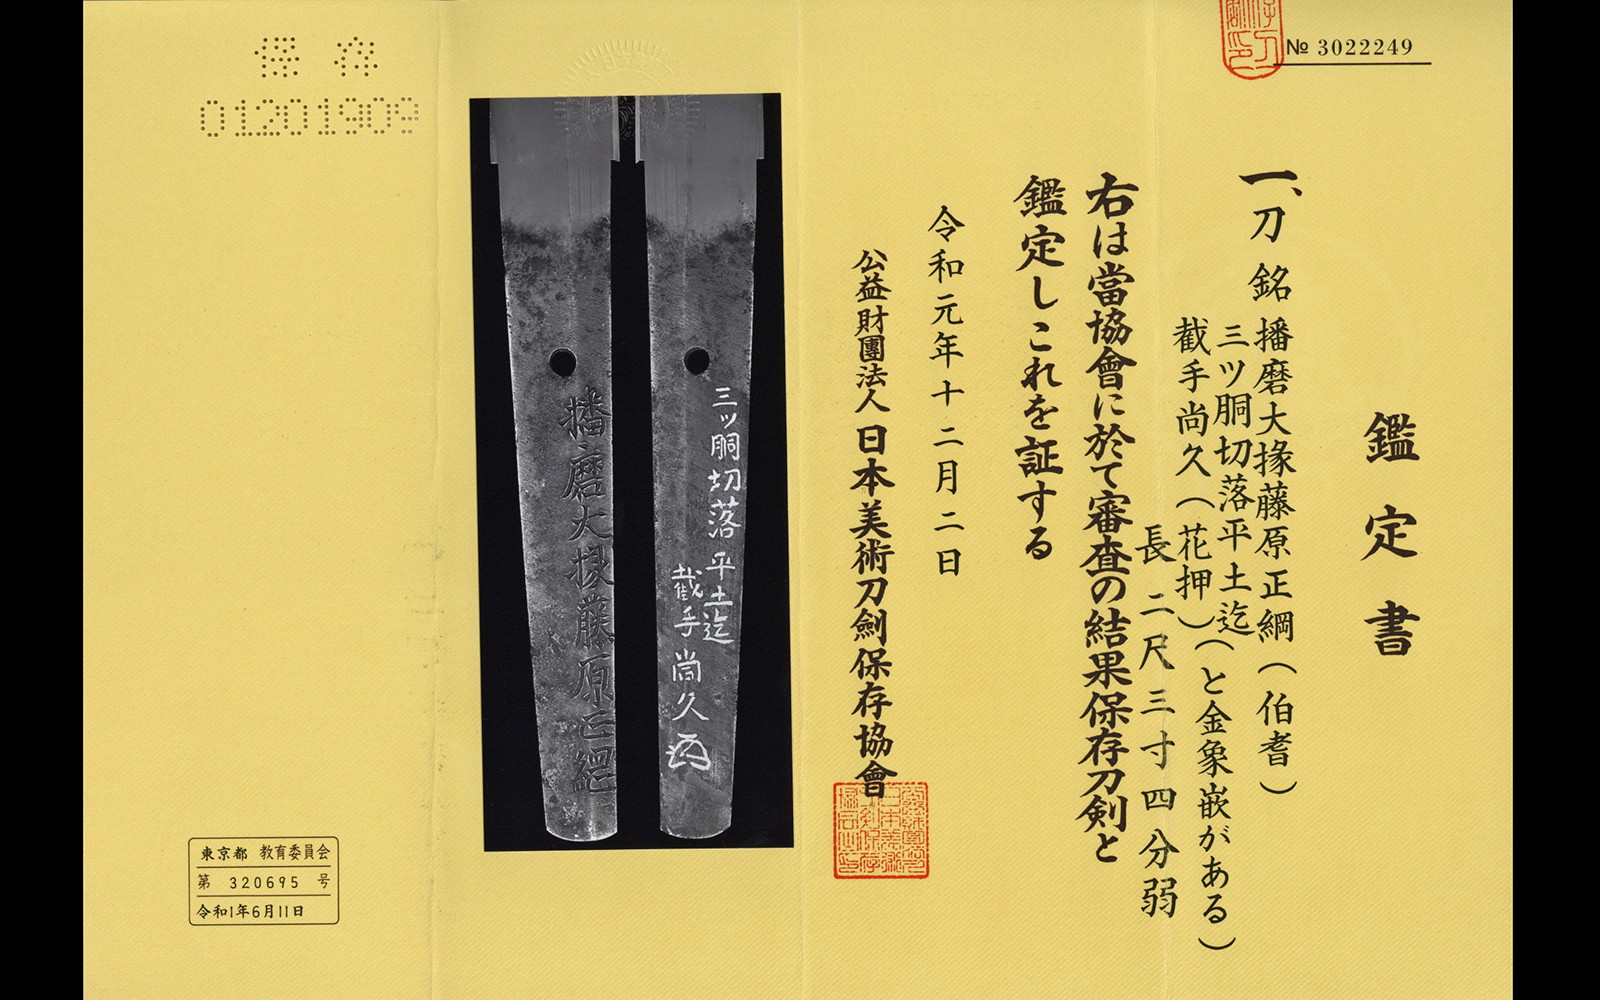 № 3022249
鑑定書
一、刀 銘 播磨大掾藤原正綱(伯耆)
三ツ胴切落平土迄
截手尚久(花押)(と金象嵌がある)
長二尺三寸四分弱
右は當協會に於て審査の結果保存刀剣と
鑑定しこれを証する
令和元年十二月二日
公益財團法人日本美術刀劍保存協會
三ツ胴切落平土迄
截手尚久
播磨大掾藤原正綱
保存
01201909
東京都 教育委員会
第 320695 号
令和1年6月11日